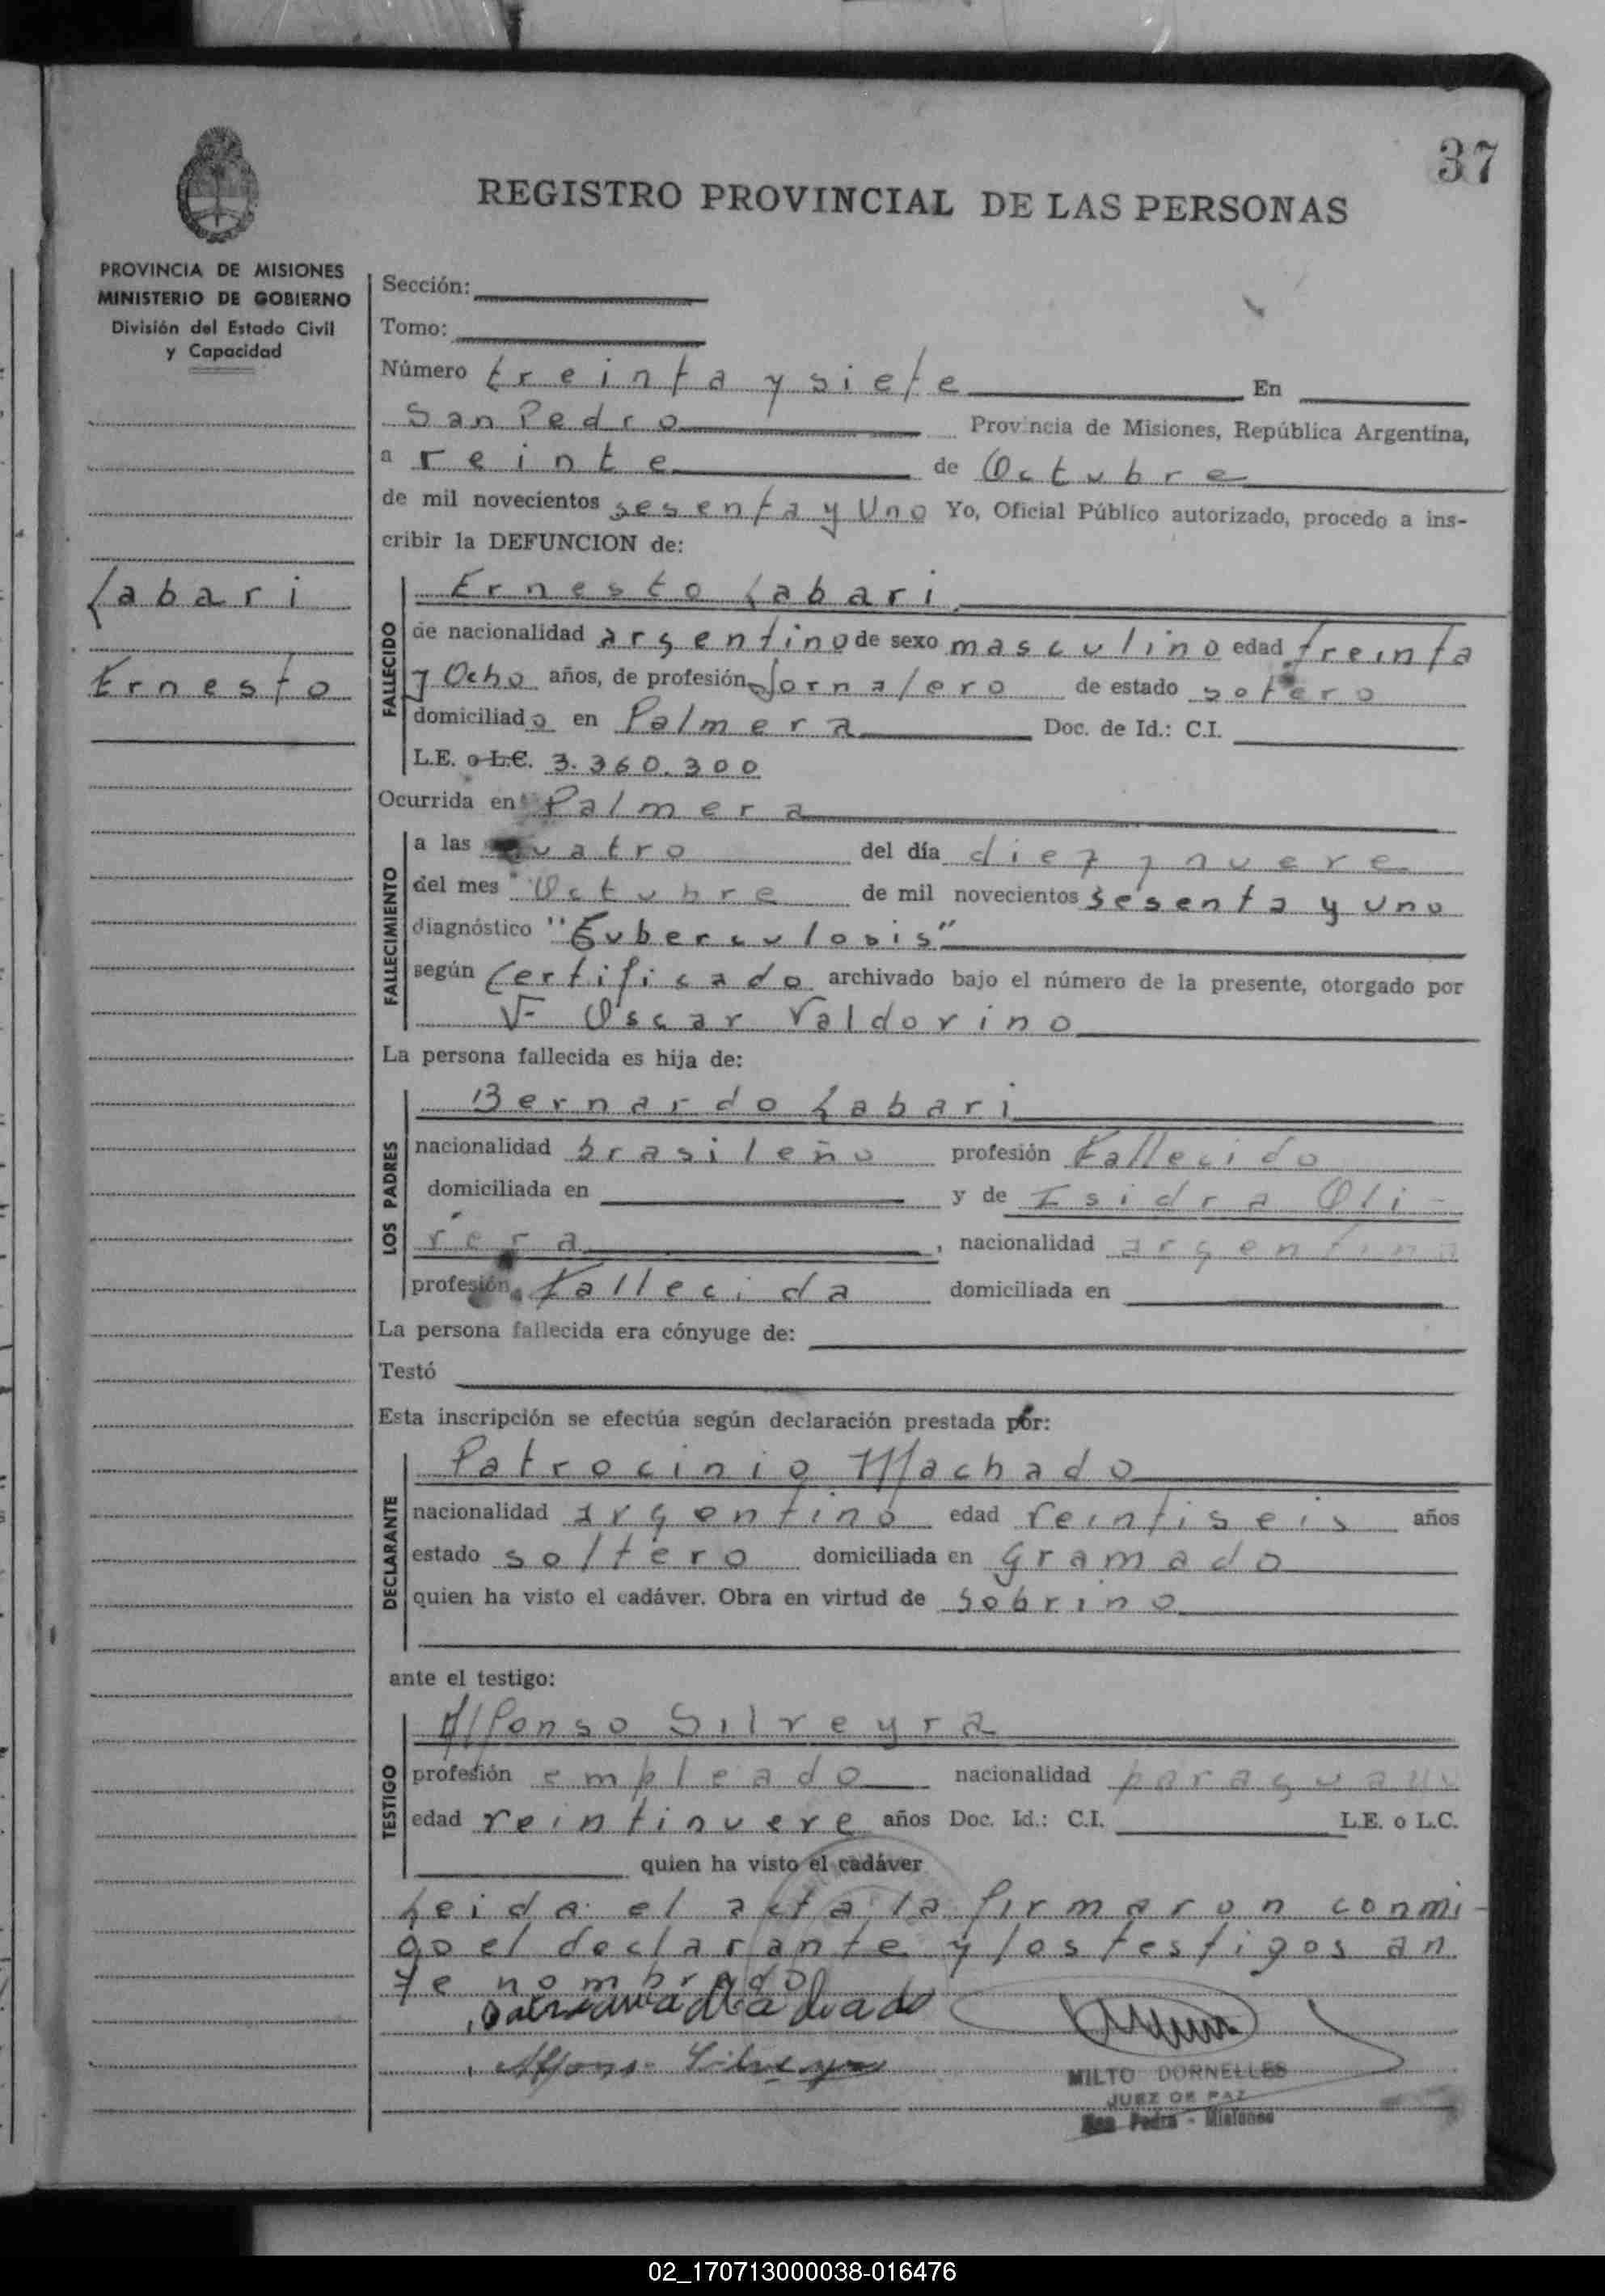 37
REGISTRO PROVINCIAL DE LAS PERSONAS
PROVINCIA DE MISIONES
MINISTERIO DE GOBIERNO
División del Estado Civil
y Capacidad
Labari
Ernesto
Sección:
Tomo:
Número treinta y siete En
San Pedro Provincia de Misiones, República Argentina,
a veinte de Octubre
de mil novecientos sesenta y Uno Yo, Oficial Público autorizado, procedo a ins-
cribir la DEFUNCION de:
FALLECIDO
Ernesto Labari
de nacionalidad argentino de sexo masculino edad treinta
y Ocho años, de profesión Jornalero de estado soltero
domiciliado en Palmera Doc. de Id.: C.I.
L.E. o L.C. 3.360.300
Ocurrida en Palmera
FALLECIMIENTO
a las cuatro del día diez y nueve
del mes Octubre de mil novecientos sesenta y uno
diagnóstico "Tuberculosis"
según Certificado archivado bajo el número de la presente, otorgado por
Oscar Valdovino
La persona fallecida es hija de:
LOS PADRES
Bernardo Labari
nacionalidad brasileño profesión Fallecido
domiciliada en y de Isidra Oli-
vera, nacionalidad argentina
profesión Fallecida domiciliada en
La persona fallecida era cónyuge de:
Testó
Esta inscripción se efectúa según declaración prestada por:
DECLARANTE
Patrocinio Machado
nacionalidad argentino edad veintiseis años
estado soltero domiciliada en gramado
quien ha visto el cadáver. Obra en virtud de sobrino
ante el testigo:
TESTIGO
Alfonso Silveyra
profesión empleado nacionalidad paraguayo
edad veintinueve años Doc. Id.: C.I. L.E. o L.C.
quien ha visto el cadáver
Leida el acta la firmaron conmi-
go el declarante y los testigos an
te nombrado
Machado
Alfonso Silveyra
MILTO DORNELLES
JUEZ DE PAZ
San Pedro - Misiones
02_170713000038-016476